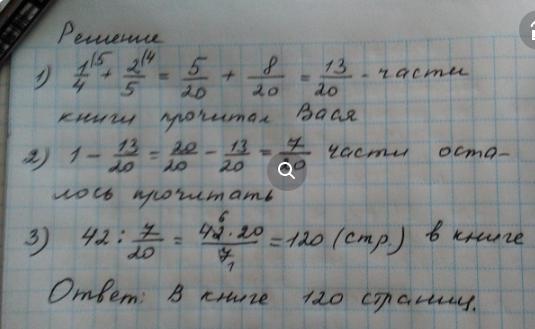 Решение
1) 1/4 |5 + 2/5 |4 = 5/20 + 8/20 = 13/20 - части
книги прочитал Вася
2) 1 - 13/20 = 20/20 - 13/20 = 7/20 части оста-
лось прочитать
3) 42 : 7/20 = 42 6 · 20 / 7 1 = 120 (стр.) в книге
Ответ: В книге 120 страниц.